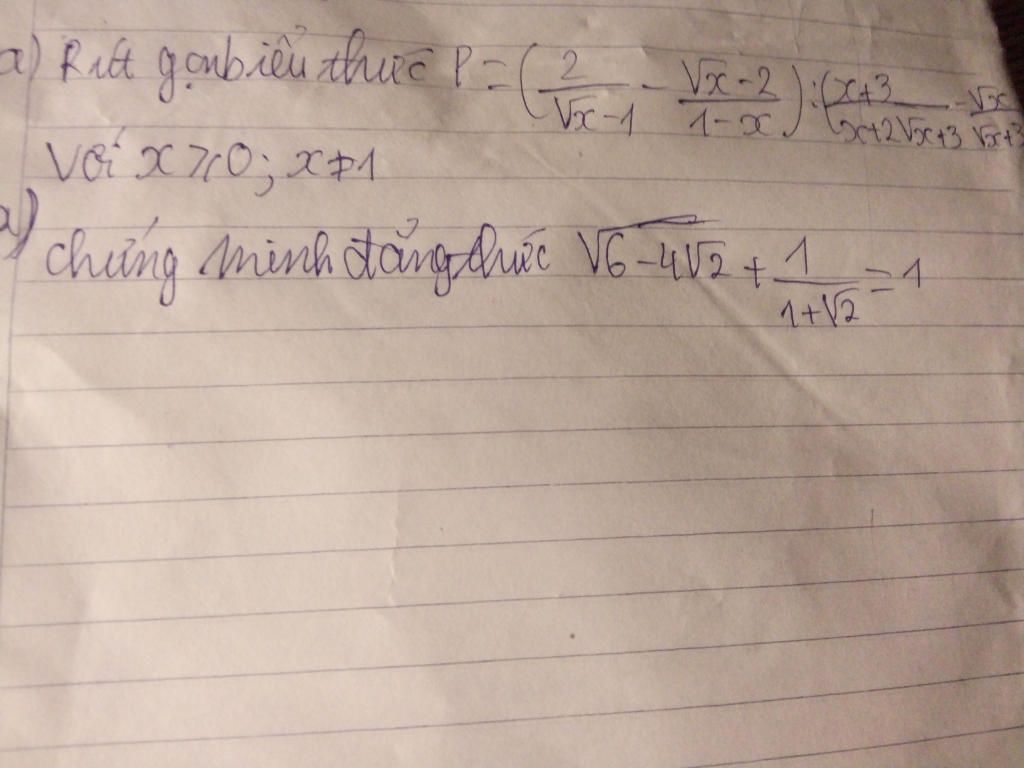 a) Rút gọn biểu thức P = (2/(√x-1) - (√x-2)/(1-x)) : ((x+3)/(x+2√x+3) - √x/(√x+3
Với x ⩾ 0; x ≠ 1
a)
chứng minh đẳng thức √(6-4√2) + 1/(1+√2) = 1